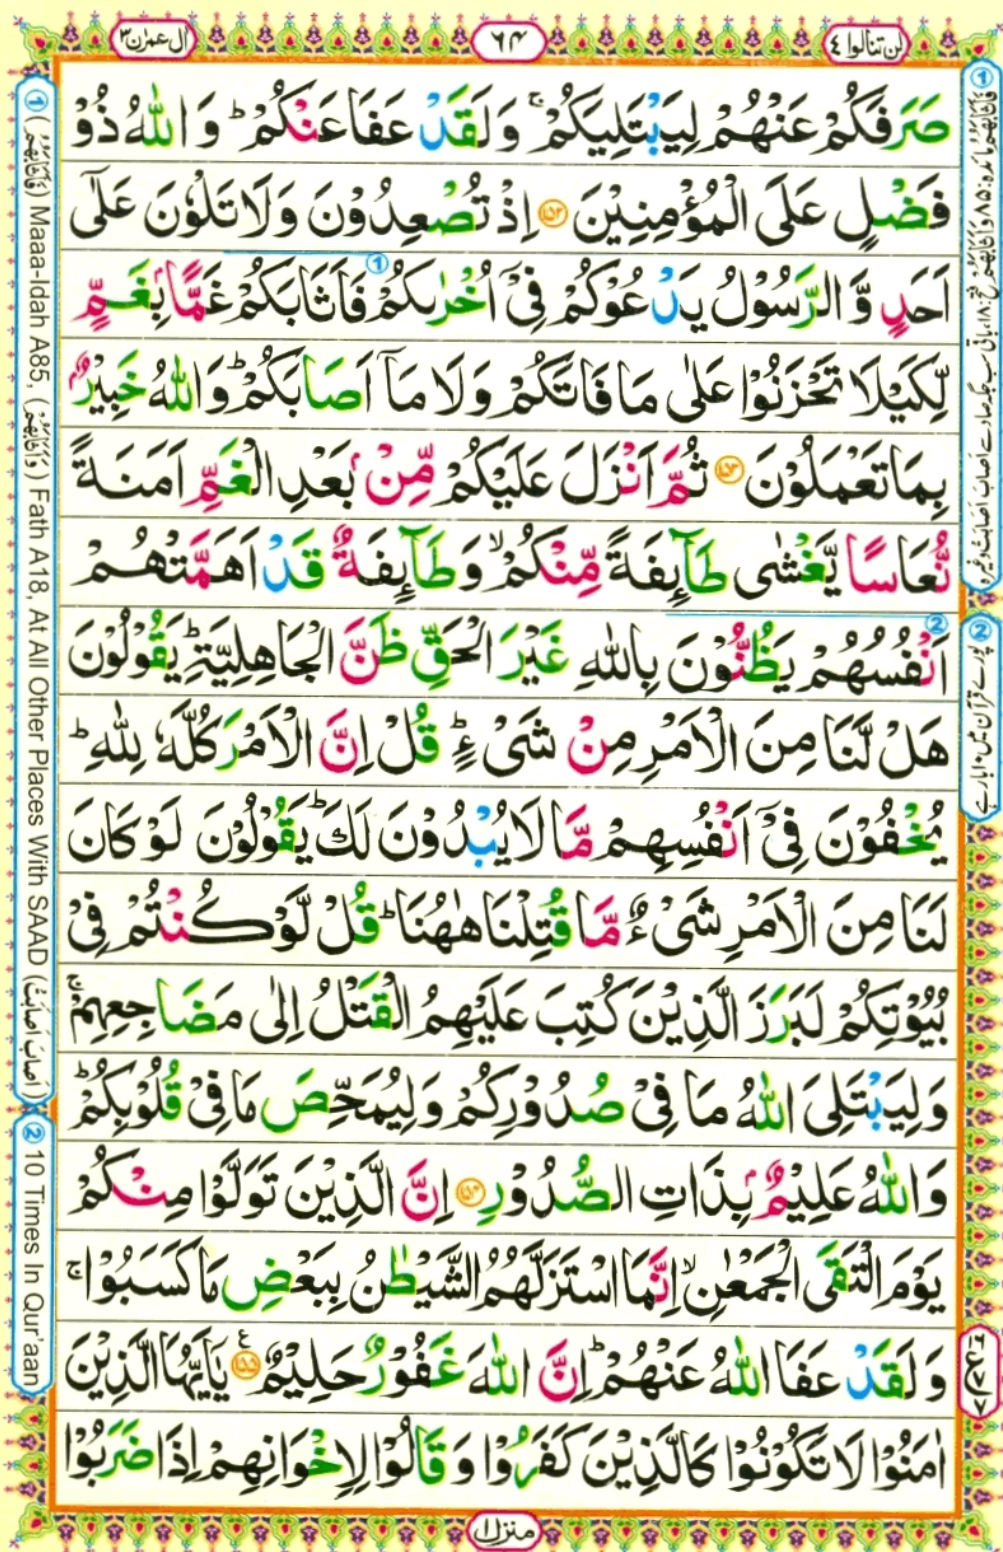 لن تنالوا ٤
٦٤
ال عمرٰن ٣
صَرَفَكُمْ عَنْهُمْ لِيَبْتَلِيَكُمْ ۚ وَ لَقَدْ عَفَا عَنْكُمْ ؕ وَ اللّٰهُ ذُوْ
فَضْلٍ عَلَى الْمُؤْمِنِيْنَ ﴿۱۵۲﴾ اِذْ تُصْعِدُوْنَ وَ لَا تَلْوٗنَ عَلٰۤى
اَحَدٍ وَّ الرَّسُوْلُ يَدْعُوْكُمْ فِيْۤ اُخْرٰىكُمْ فَاَثَابَكُمْ غَمًّۢا بِغَمٍّ
لِّكَيْلَا تَحْزَنُوْا عَلٰى مَا فَاتَكُمْ وَ لَا مَاۤ اَصَابَكُمْ ؕ وَ اللّٰهُ خَبِيْرٌۢ
بِمَا تَعْمَلُوْنَ ﴿۱۵۳﴾ ثُمَّ اَنْزَلَ عَلَيْكُمْ مِّنْۢ بَعْدِ الْغَمِّ اَمَنَةً
نُّعَاسًا يَّغْشٰى طَآىِٕفَةً مِّنْكُمْ ۙ وَ طَآىِٕفَةٌ قَدْ اَهَمَّتْهُمْ
اَنْفُسُهُمْ يَظُنُّوْنَ بِاللّٰهِ غَيْرَ الْحَقِّ ظَنَّ الْجَاهِلِيَّةِ ؕ يَقُوْلُوْنَ
هَلْ لَّنَا مِنَ الْاَمْرِ مِنْ شَيْءٍ ؕ قُلْ اِنَّ الْاَمْرَ كُلَّهٗ لِلّٰهِ ؕ
يُخْفُوْنَ فِيْۤ اَنْفُسِهِمْ مَّا لَا يُبْدُوْنَ لَكَ ؕ يَقُوْلُوْنَ لَوْ كَانَ
لَنَا مِنَ الْاَمْرِ شَيْءٌ مَّا قُتِلْنَا هٰهُنَا ؕ قُلْ لَّوْ كُنْتُمْ فِيْ
بُيُوْتِكُمْ لَبَرَزَ الَّذِيْنَ كُتِبَ عَلَيْهِمُ الْقَتْلُ اِلٰى مَضَاجِعِهِمْ ۚ
وَ لِيَبْتَلِيَ اللّٰهُ مَا فِيْ صُدُوْرِكُمْ وَ لِيُمَحِّصَ مَا فِيْ قُلُوْبِكُمْ ؕ
وَ اللّٰهُ عَلِيْمٌۢ بِذَاتِ الصُّدُوْرِ ﴿۱۵۴﴾ اِنَّ الَّذِيْنَ تَوَلَّوْا مِنْكُمْ
يَوْمَ الْتَقَى الْجَمْعٰنِ ۙ اِنَّمَا اسْتَزَلَّهُمُ الشَّيْطٰنُ بِبَعْضِ مَا كَسَبُوْا ۚ
وَ لَقَدْ عَفَا اللّٰهُ عَنْهُمْ ؕ اِنَّ اللّٰهَ غَفُوْرٌ حَلِيْمٌ ﴿۱۵۵﴾ يٰۤاَيُّهَا الَّذِيْنَ
اٰمَنُوْا لَا تَكُوْنُوْا كَالَّذِيْنَ كَفَرُوْا وَ قَالُوْا لِاِخْوَانِهِمْ اِذَا ضَرَبُوْا
منزل ۱
① (فَاَثَابَهُمْ) Maaa-Idah A85, (وَاَثَابَهُمْ) Fath A18, At All Other Places With SAAD (اَصَابَ اَصَابَتْ)
② 10 Times In Qur'aan
② پورے قرآن میں ۱۰ بار ہے